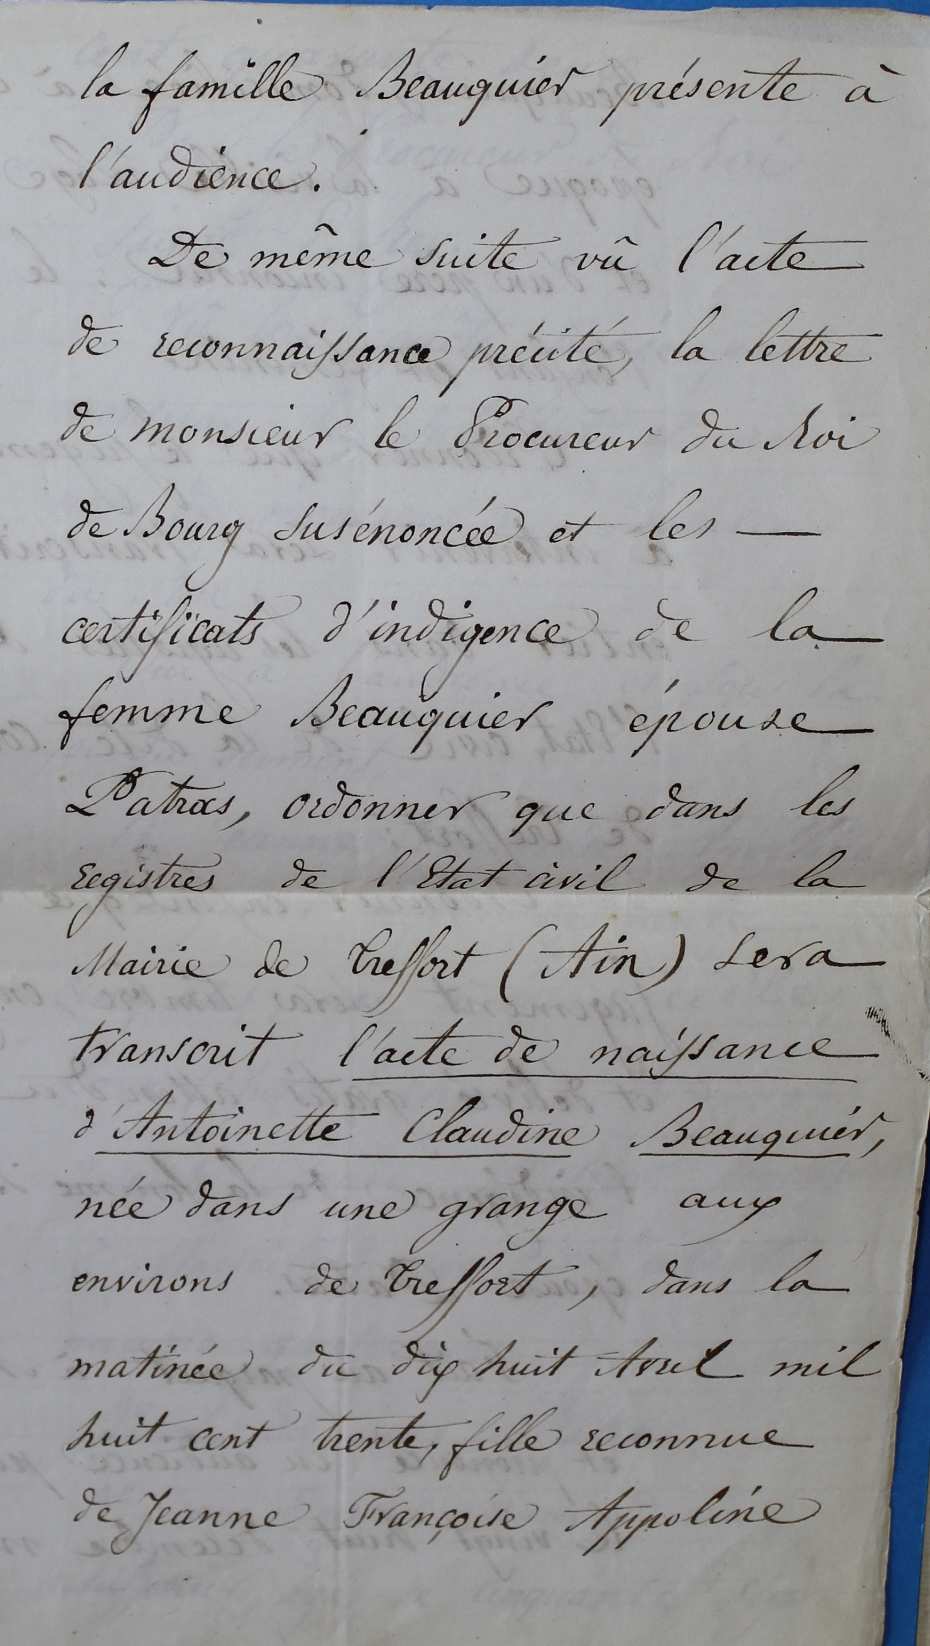 la famille Beauquier présente à
l'audience.
De même suite vû l'acte
de reconnaissance précité, la lettre
de monsieur le Procureur du Roi
de Bourg susénoncée et les —
certificats d'indigence de la
femme Beauquier épouse
Patras, ordonner que dans les
registres de l'Etat civil de la
Mairie de Treffort (Ain) sera
transcrit l'acte de naissance
d'Antoinette Claudine Beauquier,
née dans une grange aux
environs de Treffort, dans la
matinée du dix huit Avril mil
huit cent trente, fille reconnue
de Jeanne Françoise Appoline